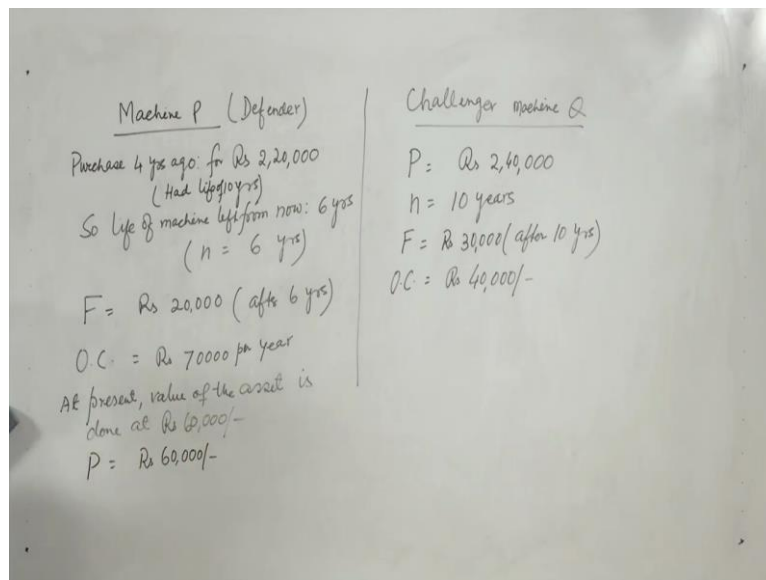 Machine P (Defender)
Purchase 4 yrs ago: for Rs 2,20,000
(Had life of 10 yrs)
So life of machine left from now: 6 yrs
(n = 6 yrs)
F = Rs 20,000 (afts 6 yrs)
O.C. = Rs 70000 per year
At present, value of the asset is
done at Rs 60,000/-
P = Rs 60,000/-
Challenger Machine Q
P = Rs 2,40,000
n = 10 years
F = Rs 30,000 (after 10 yrs)
O.C. = Rs 40,000/-